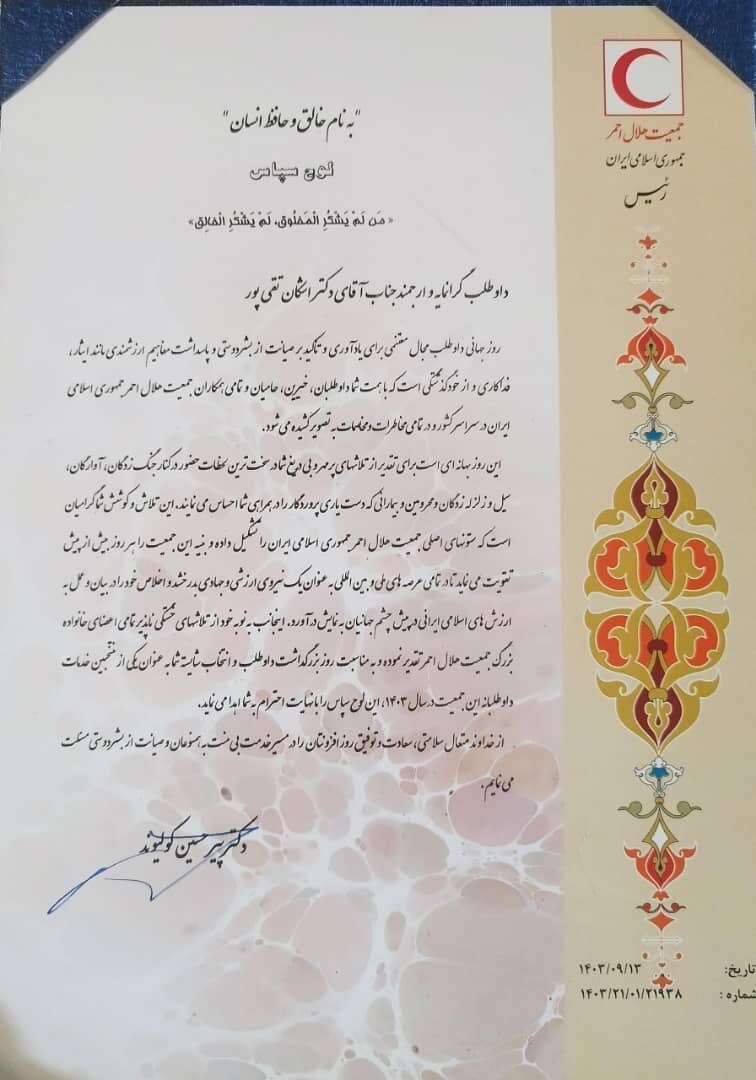 جمعیت هلال احمر
جمهوری اسلامی ایران
رئیس
"به نام خالق و حافظ انسان"
لوح سپاس
«مَن لَمْ يَشْكُرِ الْمَخْلُوق، لَمْ يَشْكُرِ الْخالِق»
داوطلب گرانمایه و ارجمند جناب آقای دکتر اشکان تقی پور
روز جهانی داوطلب مجال مغتنمی برای یادآوری و تاکید بر صیانت از بشردوستی و پاسداشت مفاهیم ارزشمندی مانند ایثار،
فداکاری و از خودگذشتگی است که با همت شما داوطلبان، خیرین، حامیان و تمامی همکاران جمعیت هلال احمر جمهوری اسلامی
ایران در سراسر کشور و در تمامی مخاطرات و مخاصمات به تصویر کشیده می شود.
این روز بهانه ای است برای تقدیر از تلاشهای پرمهر و بی دریغ شما در سخت ترین لحظات حضور در کنار جنگ زدگان، آوارگان،
سیل و زلزله زدگان و محرومین و بیمارانی که دست یاری پروردگار را در همراهی شما احساس می نمایند. این تلاش و کوشش شما گرامیان
است که ستونهای اصلی جمعیت هلال احمر جمهوری اسلامی ایران را تشکیل داده و بنیه این جمعیت را هر روز بیش از پیش
تقویت می نماید تا در تمامی عرصه های ملی و بین المللی به عنوان یک نیروی ارزشی و جهادی بدرخشد و اخلاص خود را در بیان و عمل به
ارزش های اسلامی ایرانی در پیش چشم جهانیان به نمایش درآورد. اینجانب به نوبه خود از تلاشهای خستگی ناپذیر تمامی اعضای خانواده
بزرگ جمعیت هلال احمر تقدیر نموده و به مناسبت روز بزرگداشت داوطلب و انتخاب شایسته شما به عنوان یکی از منتخبین خدمات
داوطلبانه این جمعیت در سال ۱۴۰۳، این لوح سپاس را با نهایت احترام به شما اهدا می نماید.
از خداوند متعال سلامتی، سعادت و توفیق روز افزونتان را در مسیر خدمت بی منت به همنوعان و صیانت از بشردوستی مسئلت
می نمایم.
دکتر پیرحسین کولیوند
تاریخ: ۱۴۰۳/۰۹/۱۳
شماره: ۱۴۰۳/۲۱/۰۱/۲۱۹۳۸